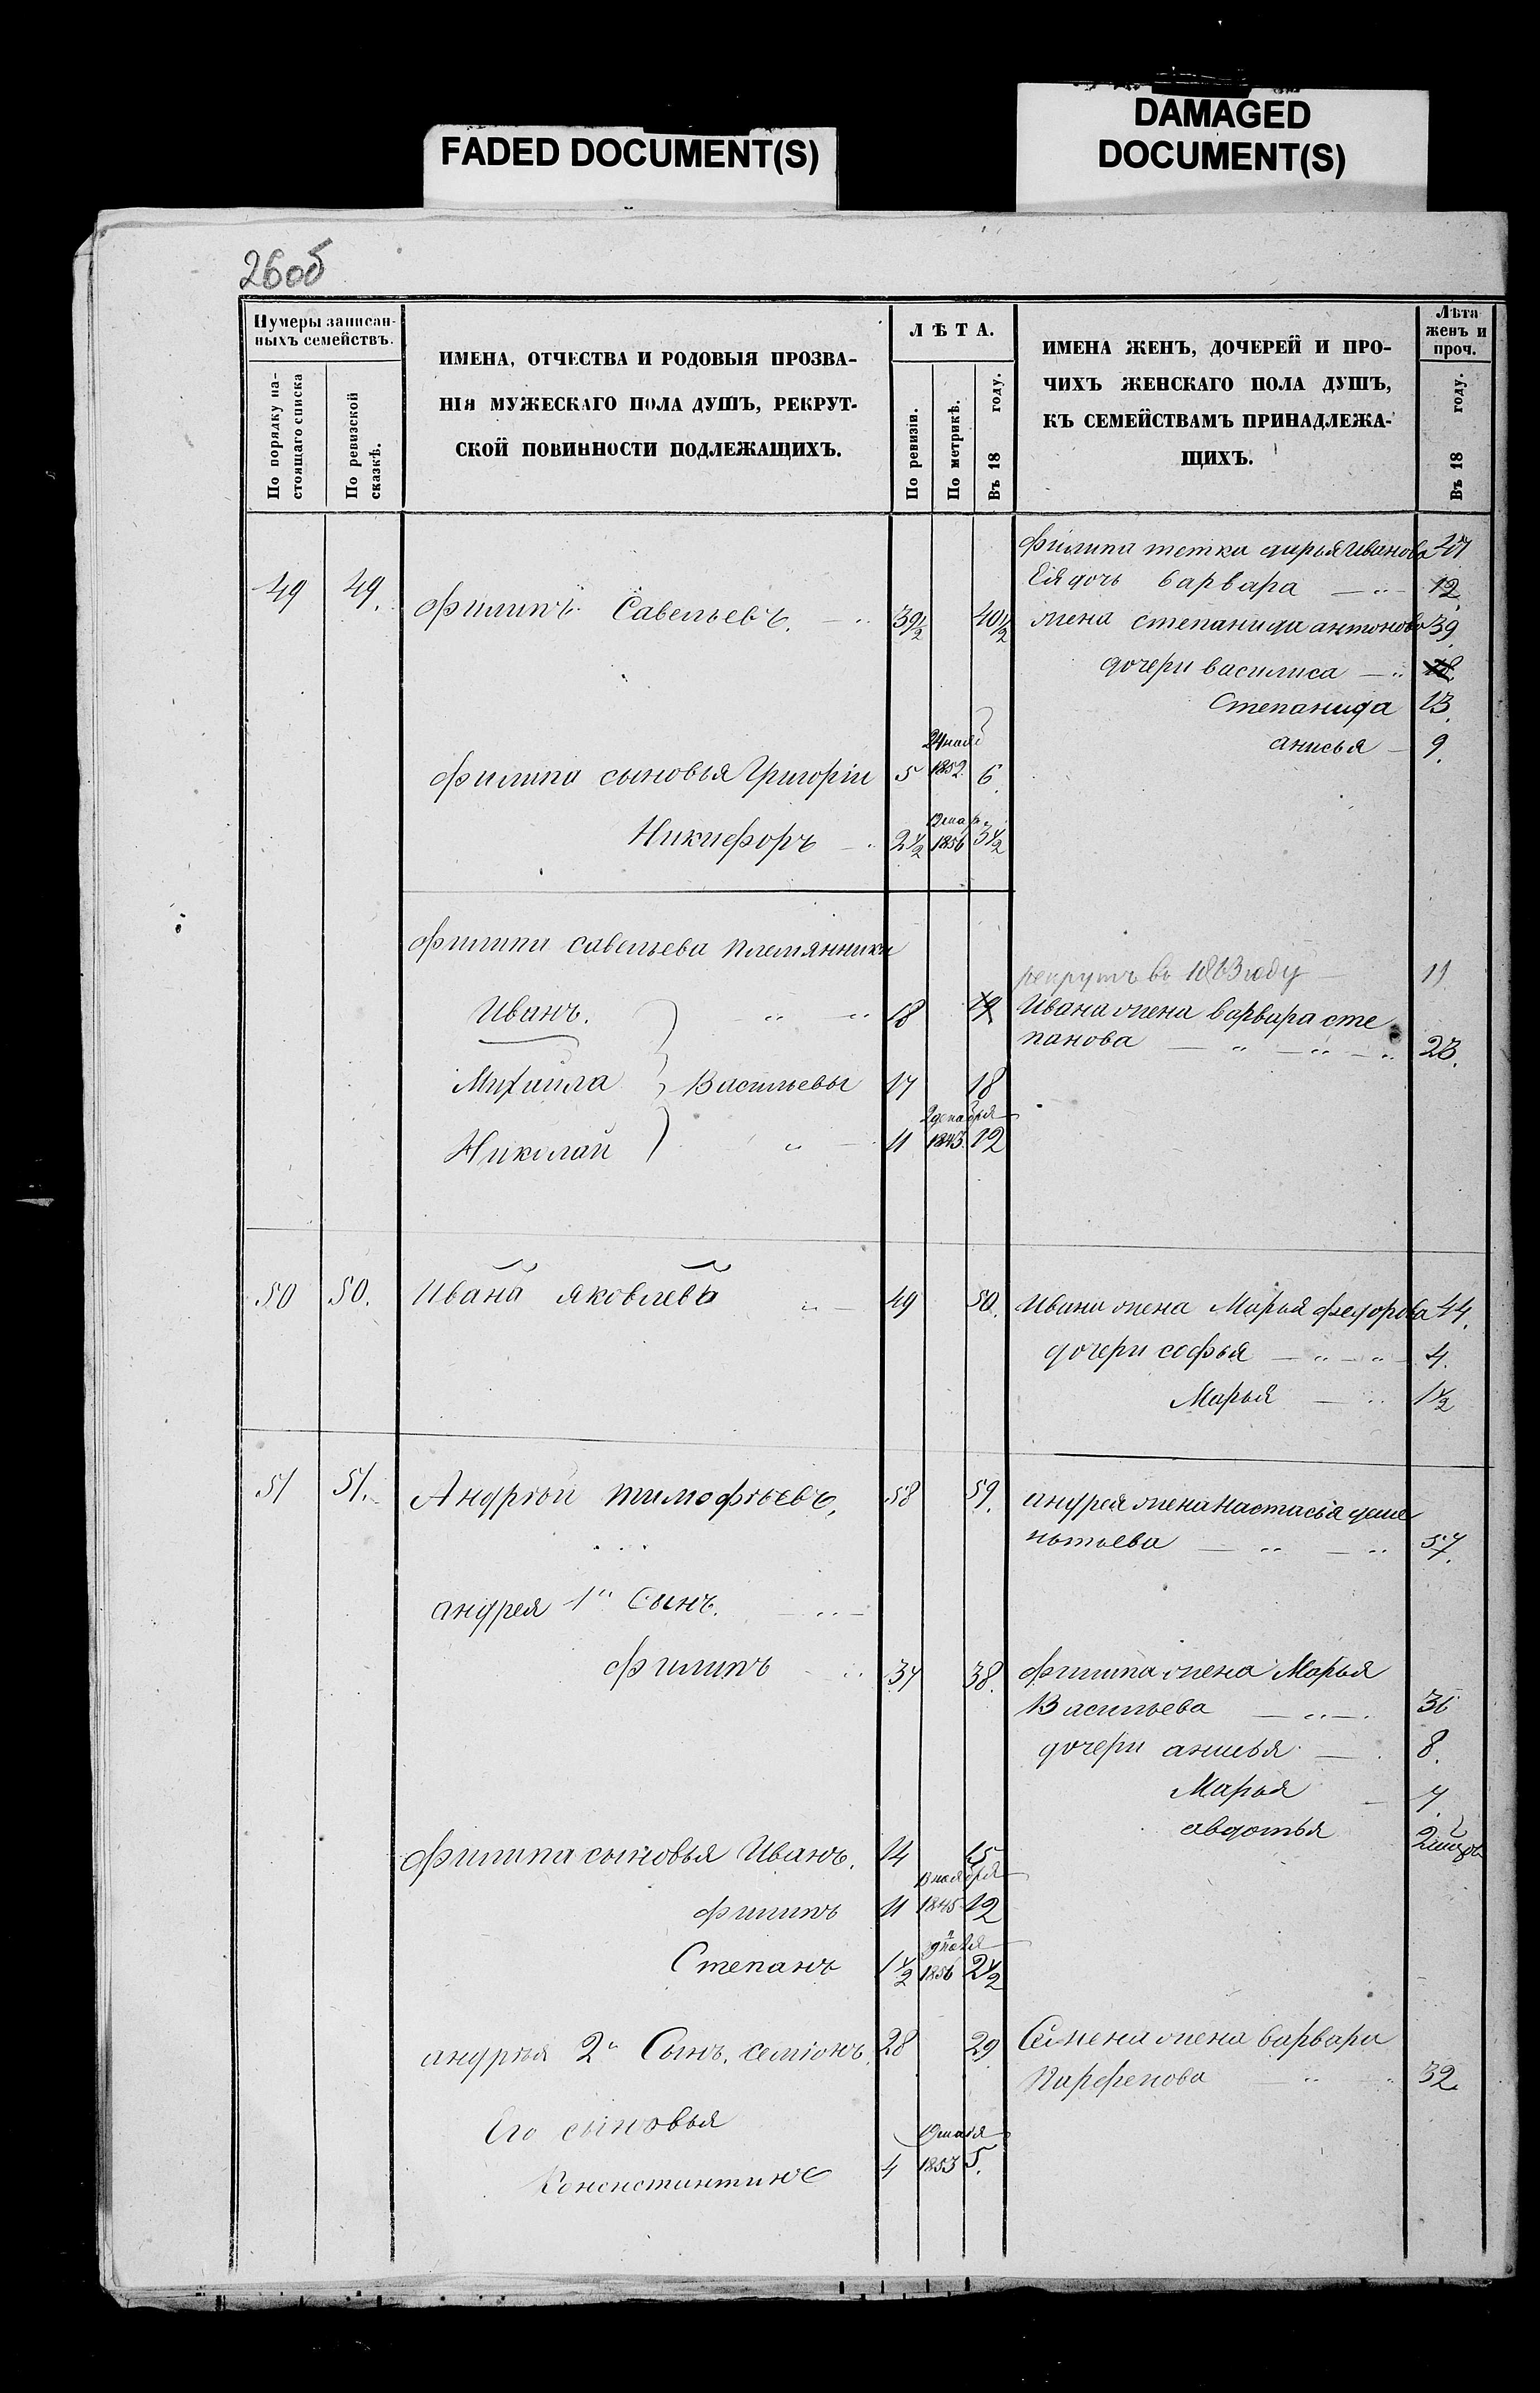 FADED DOCUMENT(S)
DAMAGED
DOCUMENT(S)
26об
Нумеры записан-
ныхъ семействъ.
По порядку на-
стоящаго списка
По ревизской
сказкѣ.
ИМЕНА, ОТЧЕСТВА И РОДОВЫЯ ПРОЗВА-
НІЯ МУЖЕСКАГО ПОЛА ДУШЪ, РЕКРУТ-
СКОЙ ПОВИННОСТИ ПОДЛЕЖАЩИХЪ.
ЛѢТА.
По ревизіи.
По метрикѣ.
Въ 18 году.
ИМЕНА ЖЕНЪ, ДОЧЕРЕЙ И ПРО-
ЧИХЪ ЖЕНСКАГО ПОЛА ДУШЪ,
КЪ СЕМЕЙСТВАМЪ ПРИНАДЛЕЖА-
ЩИХЪ.
Лѣта
женъ и
проч.
Въ 18 году.
Филипа тетка дарья Иванова 47
Ея дочь варвара 12
49 49. Филипъ Савельевъ. 39½ 40½ жена степанида антонова 39.
дочери василиса 18
Степанида 13.
анисья 9.
Филипа сыновья Григорій 5 1852. 6.
Никифоръ 2½ 1856 3½
Филипа савельева племянники
рекрутъ въ 1863 году 11
Иванъ. 18 19 Ивана жена варвара сте
панова 23.
Михаила Васильевы 17 18
2 декабря
Николай 11 1845. 12
50 50. Иванъ яковлевъ 49 50. Ивана жена Марья федорова 44.
дочери софья 4.
Марья 1½
51 51. Андрѣй тимофѣевъ, 58 59. андрея жена настасья деме
нтьева 57.
андрея 1й Сынъ.
филипъ 37 38. филипа жена Марья
Васильева 36
дочери анисья 8.
Марья 7.
авдотья 2
филипа сыновья Иванъ. 14 15
ноября
филипъ 11 1845 12
Степанъ 1½ 1856 2½
андрѣя 2й Сынъ. семіонъ. 28 29 Семена жена варвара
Парфенова 32.
Его сыновья
мая
Констинтинъ 4 1853 5.